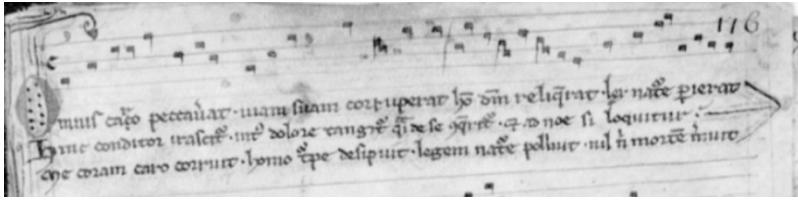 116
mnis caro peccaverat · viam suam corruperat · ho dm reliqrat · lex nate pierat
Hinc conditor irascit · int dolore tangit · q de se qrit · & ad noe si loquitur ·
me coram caro corruit · homo tpe desipuit · legem nate polluit · nil n morte mruit